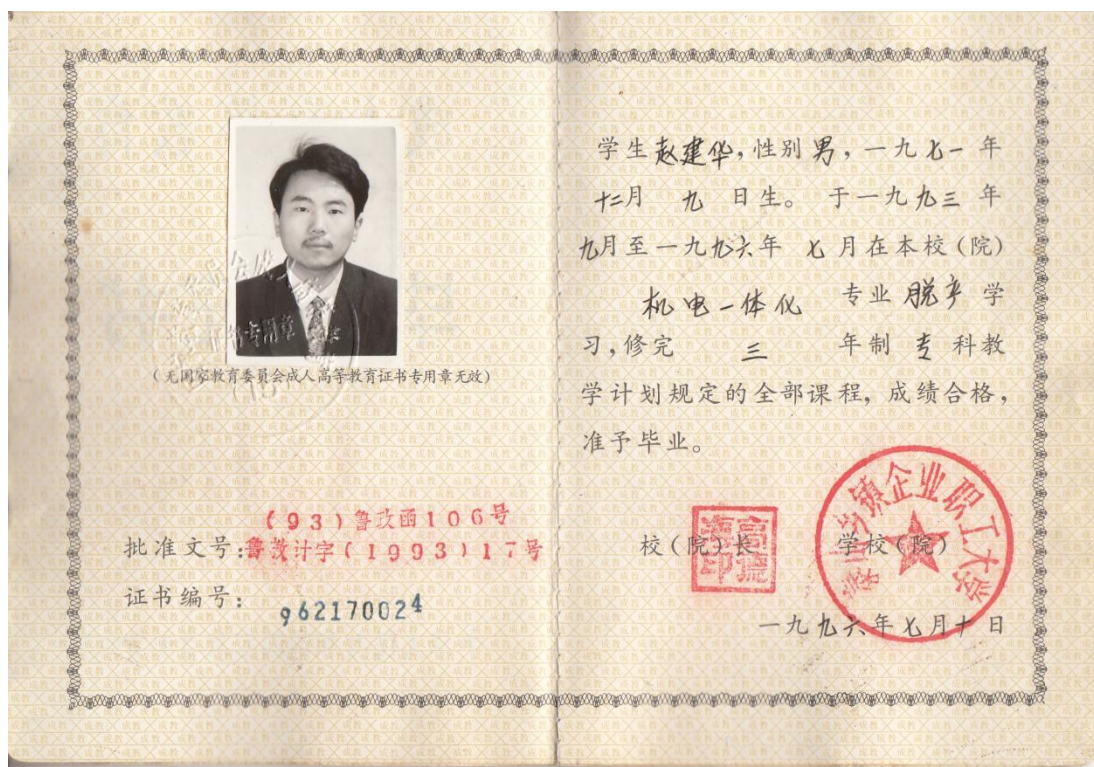 (无国家教育委员会成人高等教育证书专用章无效)
(93)鲁政函106号
批准文号:鲁教计字(1993)17号
证书编号:962170024
学生赵建华,性别男,一九七一年
十二月 九 日生。 于一九九三 年
九月至一九九六年 七月在本校(院)
机电一体化 专业 脱产 学
习,修完 三 年制 专 科教
学计划规定的全部课程,成绩合格,
准予毕业。
校(院)长 学校(院)
镇企业职工大学
一九九六年七月十日